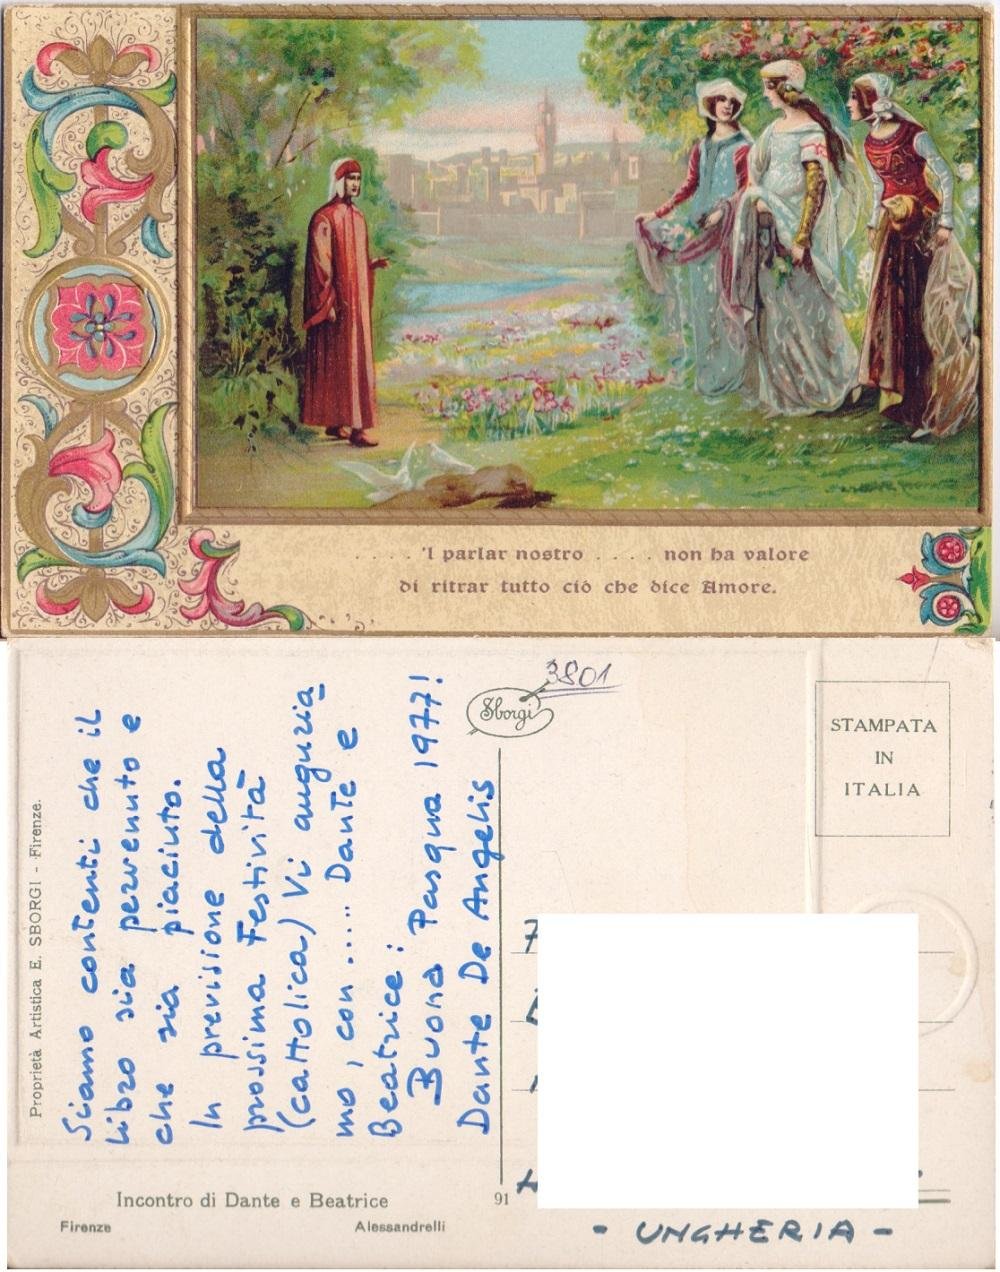 . . . . . 'l parlar nostro . . . . . non ha valore
di ritrar tutto ciò che dice Amore.
Proprietà Artistica E. SBORGI - Firenze.
Siamo contenti che il
libro sia pervenuto e
che sia piaciuto.
In previsione della
prossima Festività
(cattolica) Vi auguria
mo, con .... Dante e
Beatrice:
Buona Pasqua 1977!
Dante De Angelis
3801
Sborgi
STAMPATA
IN
ITALIA
Incontro di Dante e Beatrice
Firenze
Alessandrelli
91
- UNGHERIA -